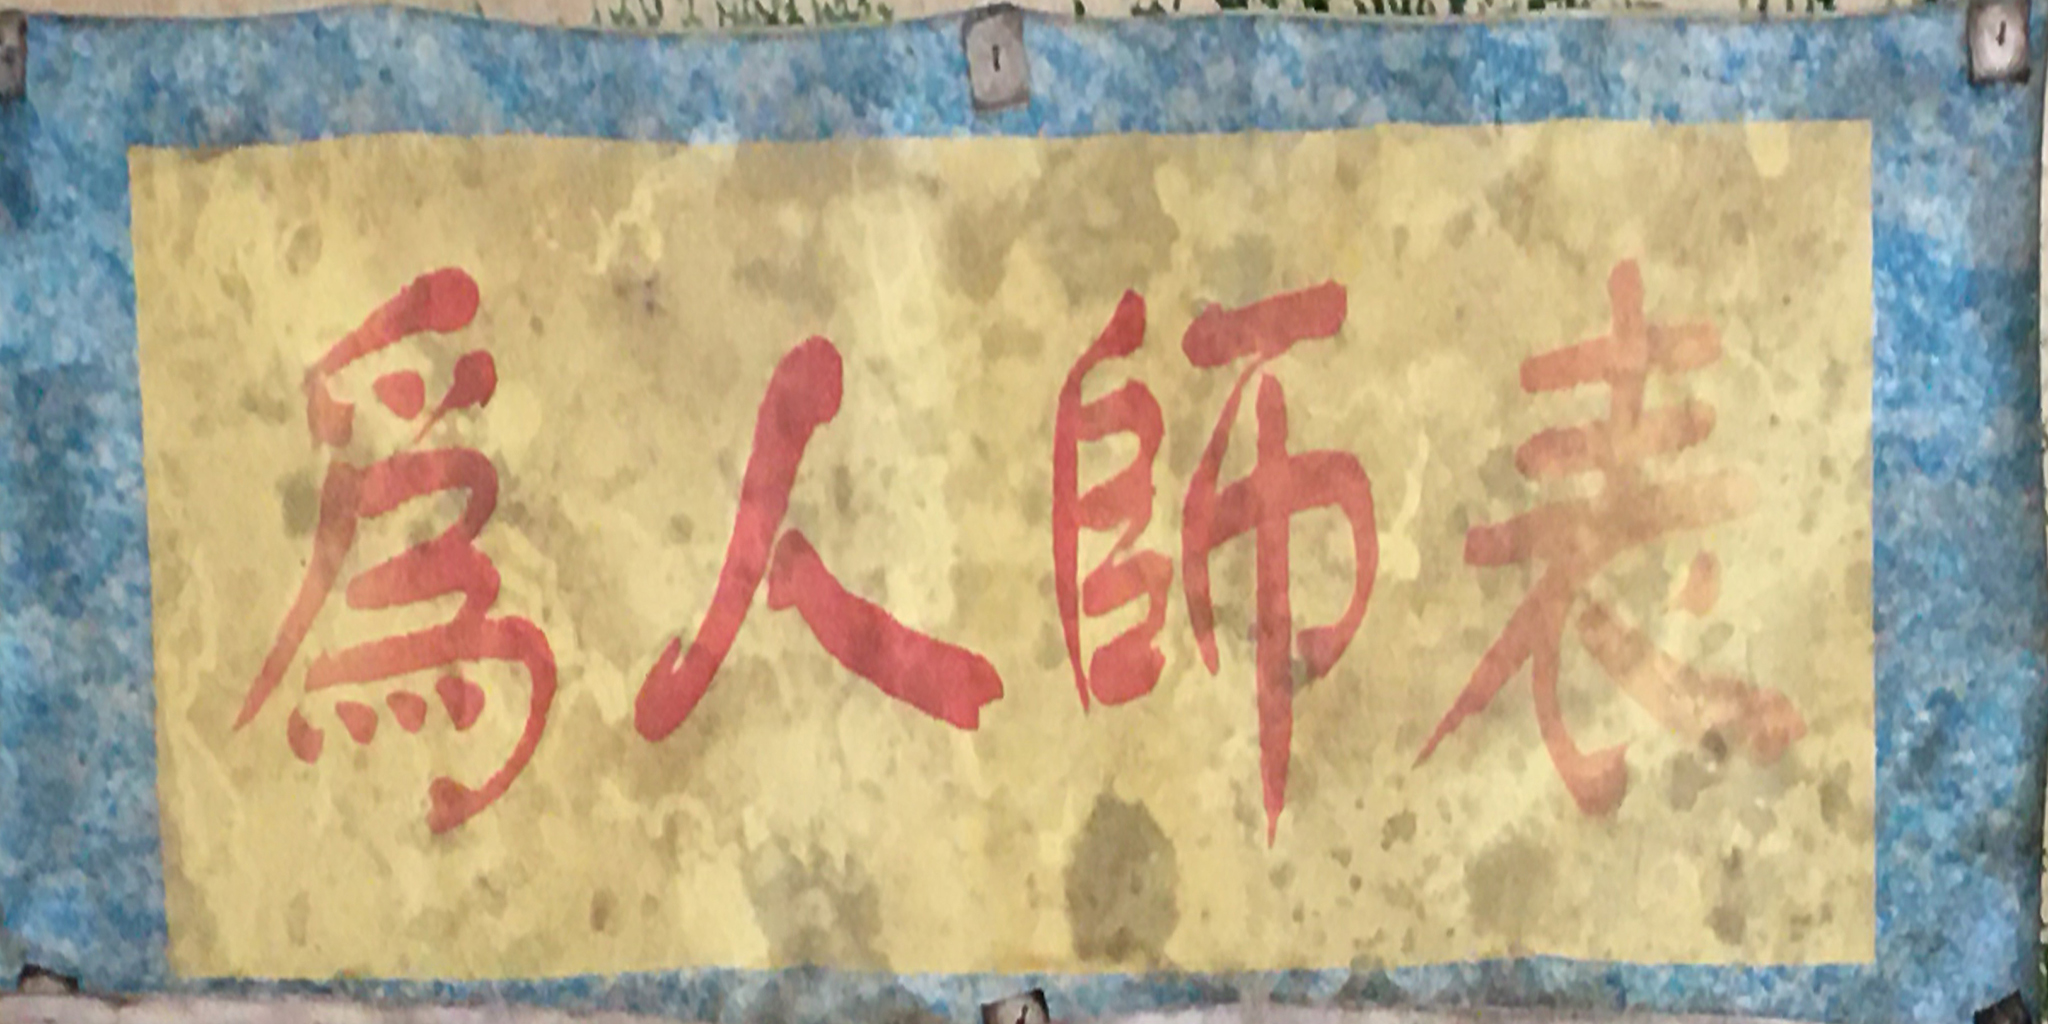 爲人師表